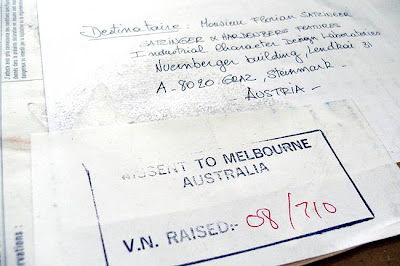 Destinataire : Monsieur Florian SATZINGER
SATZINGER & HARDENBERG FEATURES
Industrial Character Design Laboratories
Nuernberger building, Lendkai 31
A-8020 GRAZ, Steinmark -
AUSTRIA -
MISSENT TO MELBOURNE
AUSTRALIA
V.N. RAISED:- 08/710
ervations :